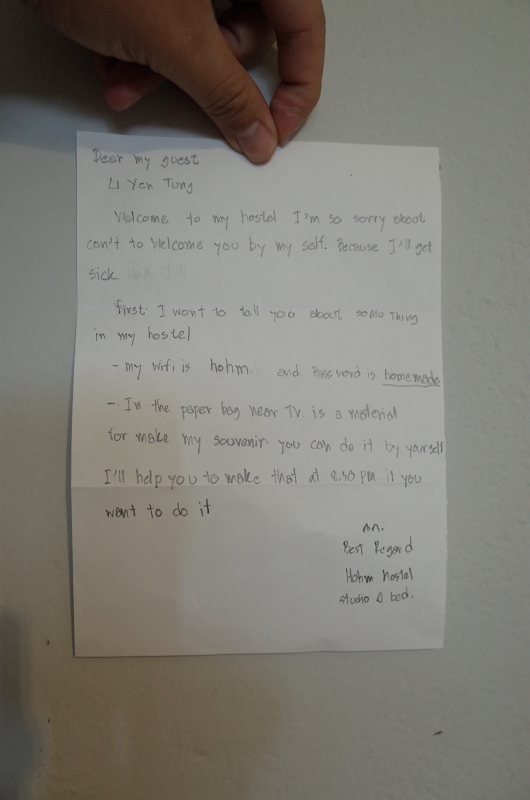 Dear my guest
Li Yen Tung
Welcome to my hostel I'm so sorry about
can't to Welcome you by my self. Because I'll get
sick
first. I want to tell you about some Thing
in my hostel
- my wifi is hohm and Password is homemade
- In the paper bag near TV. is a material
for make my souvenir you can do it by your self
I'll help you to make that at 8.30 PM if you
want to do it
Best Regard
Hohm Hostel
studio & bed.